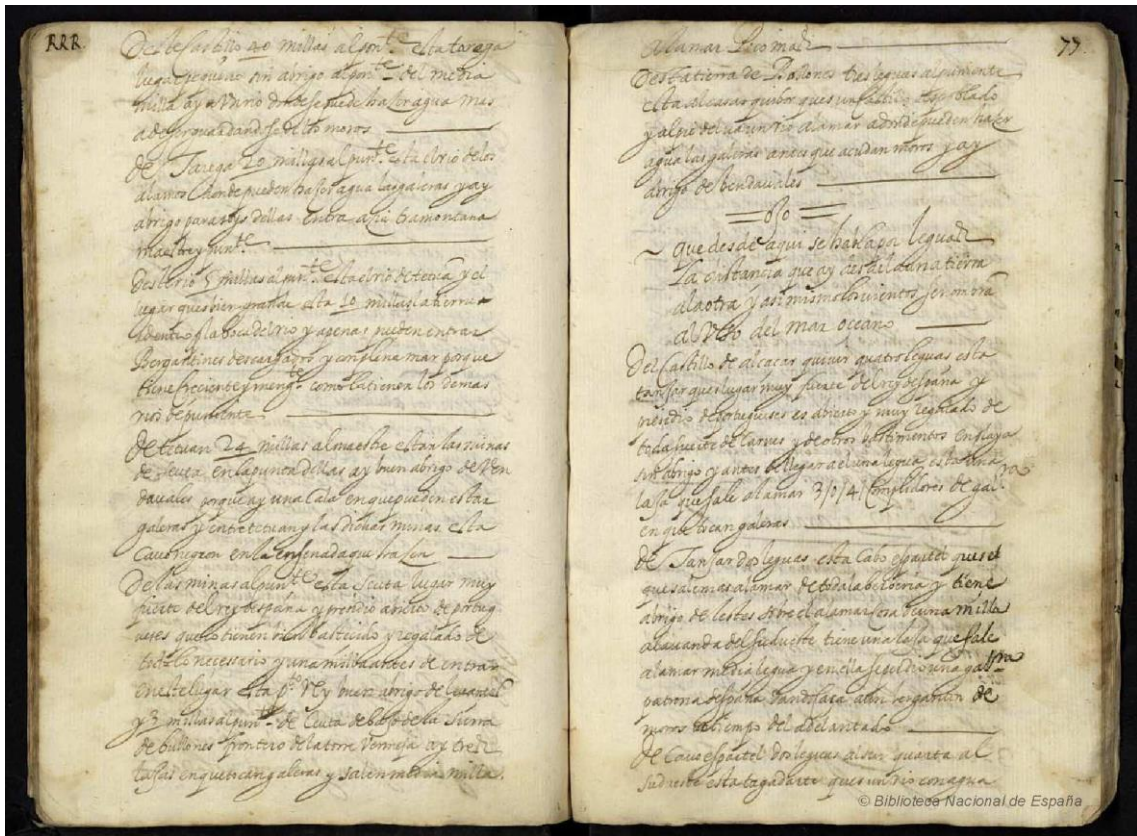 RRR.
Deste Castillo 40 millas al pon.te esta targa
lugar pequeño sin abrigo al pon.te del media
milla ay un Rio donde se puede hazer agua mas
a de ser guardandose de los moros
de Tarega 20 millas al pun.te esta el rio de los
alamos donde pueden hazer agua las galeras y ay
abrigo para dellas entra azia tramontana
maestre y pun.te
deste rio 5 millas al pun.te esta el rio de tetuã y el
lugar ques bien grande esta 10 millas la tierra
dentro de la boca del rio y apenas pueden entrar
Bergantines descargados y con plena mar porque
tiene creciente y meng.te como la tienen los demas
rios de puniente
de tetuan 24 millas al maestre estan las minas
de seuta en la punta dellas ay buen abrigo de ven
dauales porque ay una Cala en que pueden estar
galeras y entre tetuan y las dichas minas esta
Cauo negron en la ensenada que hazen
de las minas al pun.te esta Seuta lugar muy
fuerte del rey despaña y presidio de portug
ueses que lo tienen bien bastecido y regalado de
todo lo necessario y una milla antes de entrar
en este lugar esta p.to y buen abrigo de leuantes
y 3 millas al pun.te de Ceuta debajo de la Sierra
de bullones frontero de la torre Vermeja ay tres
lajas en que tocan galeras y salen media milla
77.
a la mar
desta tierra de Bollones tres leguas al puniente
esta alcasar quibir ques un castillo despoblado
y al pie del va un rio a la mar adonde pueden hazer
agua las galeras antes que acudan moros y ay
abrigo de bendauales
~ que desde aqui se habla por leguas
la distancia que ay desde la una tierra
a la otra y asi mismo los vientos se nombrã
al Uso del mar oceano
del Castillo de alcaçar quiuir quatro leguas esta
tanjar ques lugar muy fuerte del rey despaña y
presidio de portugueses es abierto y muy regalado de
toda suerte de carnes y de otros bastimentos en playa
sin abrigo y antes de llegar a el una legua esta una
laja que sale a la mar 3/o/4/ Cumplidores de gal.ra
en que tocan galeras
de Tanjar dos leguas esta Cabo espartel ques el
que sale mas a la mar de toda la berberia y tiene
abrigo de lestes sobre el a la mar cosa de una milla
a la uanda del sudueste tiene una laja que sale
a la mar media legua y en ella se perdio una gal.ra
patrona despaña dando caça a un bergantin de
moros en tiempo del adelantado
de Cauo espartel dos leguas al sur quarta al
sudueste esta tagadarte ques un rio con agua
© Biblioteca Nacional de España